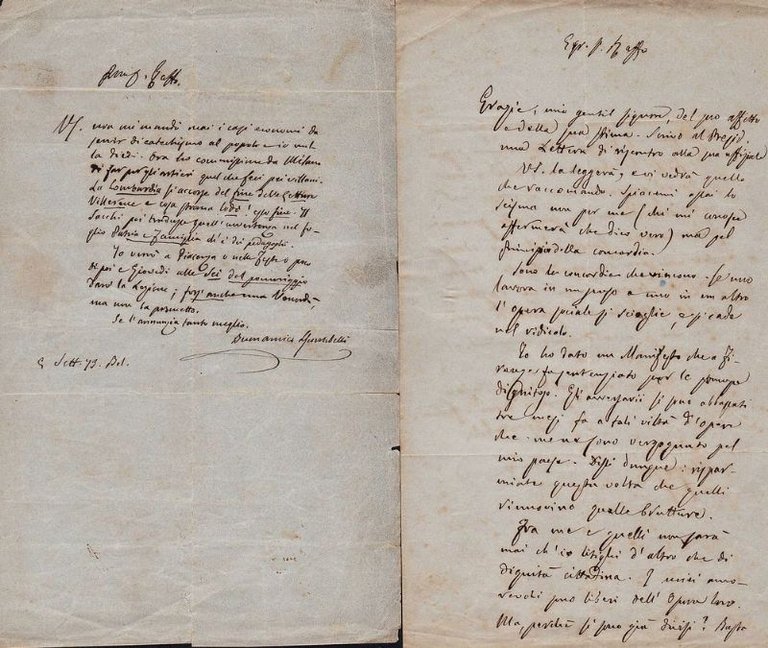 Prof. Raffo.
VS. ora mi mandi mai i casi economi da
servir di catechismo al popolo e io vol
la diedi. Ora ho commissione da Milano
di far per gli artieri quel che feci pei villani.
La Lombardia si accorse del fine delle Letture
e cosa strana lodò! esso fine. Il
Sacchi poi traduce quell'avvertenza nel fo-
glio Patria e Famiglia di i dei pedagoghi.
Io verrò a Piacenza o nelle feste o poco
di poi e Giovedì alle sei del pomeriggio
Darò la Lezione; fors'anche una Venerdì,
ma non la prometto.
Se l'annunzia tanto meglio.
8 Sett. 73. Bol.
Egr. P. Raffo
Grazie, mio gentil signore, del suo affetto
e della sua stima. Scrivo al Presid.
una Lettera di riscontro alla sua offiziale
VS. la leggerà, e ci vedrà quello
che raccomando. Spiacemi assai lo
scisma non per me (chi mi conosce
affermerà che dico vero) ma pel
principio della concordia.
Sono le concordie che vincono. Se uno
lavora in un senso e uno in un altro
l'opera sociale si scioglie, e si cade
nel ridicolo.
Io ho dato un Manifesto che a Fi-
renze fu sentenziato per le stampe
dignitoso. Gli avversarii si son abbassati
tre mesi fa a tali viltà d'opere
che me ne sono vergognato pel
mio paese. Dissi dunque: rispar-
miate questa volta che quelli
rinnovino quelle brutture.
Fra me e quelli non sarà
mai ch'io litighi d'altro che di
dignità cittadina. I amo-
revoli son liberi dell'Opera loro.
Ma, perchè si son già divisi? Basta